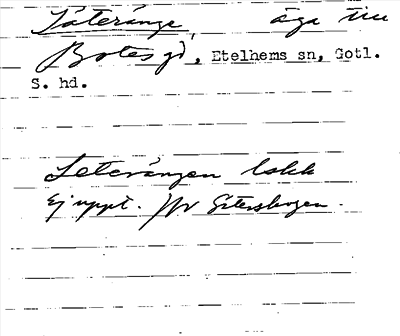 Låteränge, äga in
Botes gd, Etelhems sn, Gotl.
S. hd.
Leterängen lokk
Ej uppt. Jfr Gitersbogen.